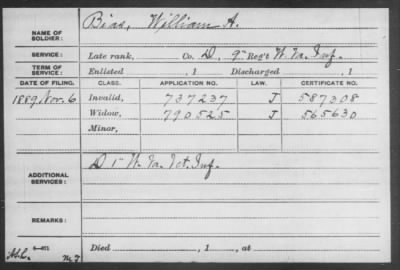 NAME OF SOLDIER: Bias, William A.
SERVICE: Late rank, Co. D, 9" Reg't W. Va. Inf.
TERM OF SERVICE: Enlisted , 1 Discharged , 1
DATE OF FILING. CLASS. APPLICATION NO. LAW. CERTIFICATE NO.
1889 Nov. 6 Invalid, 737237 J 587308
Widow, 790525 J 565630
Minor,
ADDITIONAL SERVICES: D 1" W. Va. Vet. Inf.
REMARKS:
6-071
Died , 1 , at